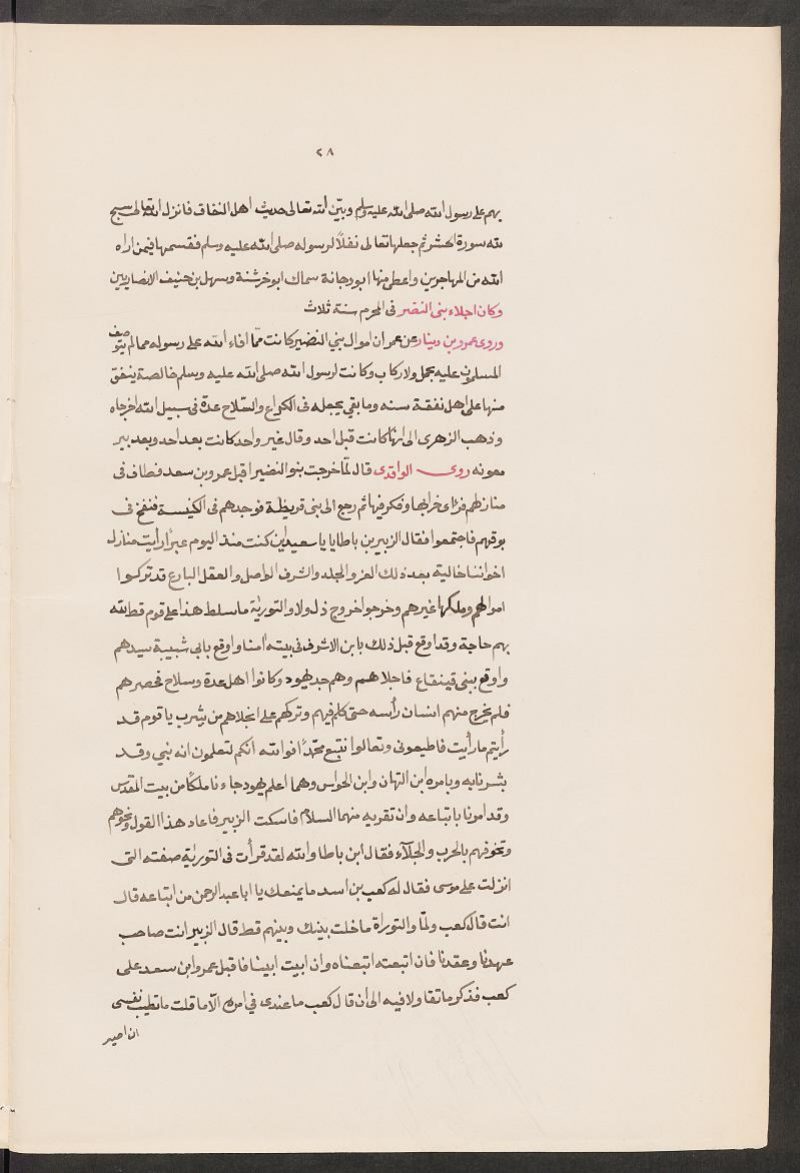 ٢٨
بهم على رسول الله صلى الله عليه وسلم وبيّن الله تعالى حديث اهل النفاق فانزل الله تعالى سبح
لله سورة الحشر ثم جعلها تعالى نفلاً لرسوله صلى الله عليه وسلم فقسمها فيمن اراه
الله من المهاجرين واعطى منها ابو دجانة سماك ابو خرشنة وسهل بن حنيف الانصاريين
وكان اجلاء بنى النضير فى المحرم سنة ثلاث
وروى عمرو بن دينار عن عمر ان اموال بني النضير كانت ممّا افاء الله على رسوله مما لم يوصف
المسلمون عليه بخيل ولا ركاب وكانت لرسول الله صلى الله عليه وسلم خالصة ينفق
منها على اهل نفقة سنه وما بقي يجعله فى الكراع والسّلاح عدّة فى سبيل الله اخرجاه
وذهب الزهرى الى انها كانت قبل احد وقال غير واحد كانت بعد احد وبعد بير
معونه روى الواقدى قال لمّا خرجت بنو النضير اقبل عمرو بن سعد فطاف فى
منازلهم فرأى خرابها وفكر فيها ثم رجع الى بنى قريظة فوجدهم فى الكنيسة فنفخ فى
بوقهم فاجتمعوا فقال الزبير بن باطا يا با سعيد اين كنت منذ اليوم قال رأيت منازل
اخواننا خالية بعد ذلك العز والجلد والشرف الواصل والعقل البارع قد تركوا
اموالهم وملكها غيرهم وخرجوا خروج ذل ولا والتورية ما سلط هذا على قوم قط لله
بهم حاجة وقد اوقع قبل ذلك بابن الاشرف فى بيته امنا واوقع بابى شيبة سيدهم
واوقع ببنى قينقاع فاجلاهم وهم جد يهود وكانوا اهل عدة وسلاح فحصرهم
فلم يخرج منهم انسان رأسه حتى كلم فيهم وتركهم على انجلاهم من يثرب يا قوم قد
رأيتم ما رأيت فاطيعونى وتعالوا نتبع محمّداً فوالله انكم لتعلمون انه نبي وقد
بشرنا به وبامره ابن التهان وابن الحواس وهما اعلم يهود جاءنا ملكاً من بيت المقدس
وقد امرونا باتباعه وان نقريه منهما السلام فاسكت الزبير فاعاد هذا القول ونحوهم
وتخوفهم بالحرب والجلآء فقال ابن باطا والله لقد قرأت فى التورية صفته التى
انزلت على موسى فقال له كعب بن اسد ما يمنعك يا ابا عبد الرحمن من اتباعه قال
انت قال كعب ولمَ والتوراة ما خلت بينك وبينهم قط قال الزبير انت صاحب
عهدنا وعقدنا فان اتبعته اتبعناه وان ابيت ابينا فاقبل عمرو ابن سعد على
كعب فذكر ما تقاولا فيه الى أن قال كعب ما عندى في امره الّا ما قلت ما تطيب نفسى
ان اصير